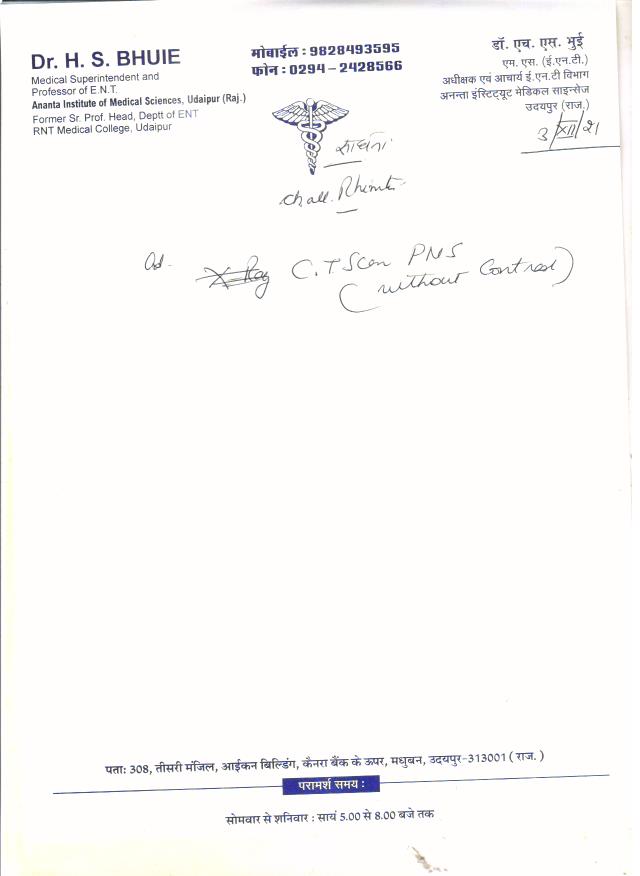 Dr. H. S. BHUIE
Medical Superintendent and
Professor of E.N.T.
Ananta Institute of Medical Sciences, Udaipur (Raj.)
Former Sr. Prof. Head, Deptt of ENT
RNT Medical College, Udaipur
मोबाईल : 9828493595
फोन : 0294 – 2428566
डॉ. एच. एस. भुई
एम. एस. (ई.एन.टी.)
अधीक्षक एवं आचार्य ई.एन.टी विभाग
अनन्ता इंस्टिट्यूट मेडिकल साइन्सेज
उदयपुर (राज.)
3/XII/21
साधना
Ad.
X-Ray C.T Scan PNS
(without Contrast)
पता: 308, तीसरी मंजिल, आईकन बिल्डिंग, कैनरा बैंक के ऊपर, मधुबन, उदयपुर-313001 ( राज. )
परामर्श समय :
सोमवार से शनिवार : सायं 5.00 से 8.00 बजे तक